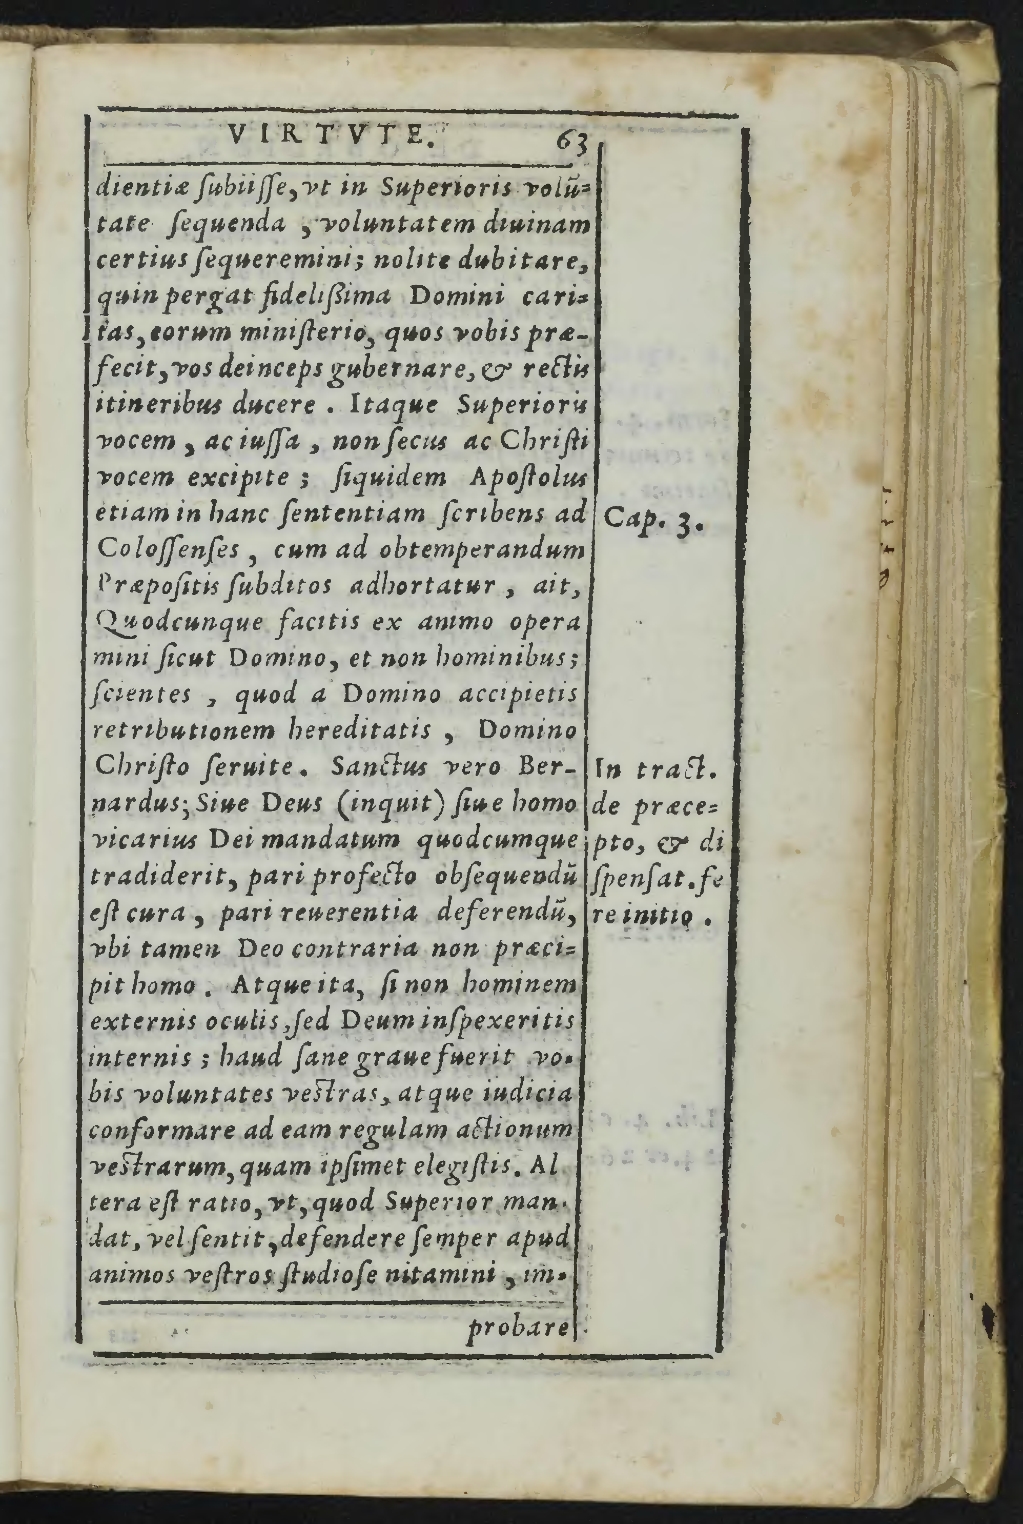 VIRTVTE. 63
dientiæ ſubiiſſe, vt in Superioris volū=
tate ſequenda, voluntatem diuinam
certius ſequeremini; nolite dubitare,
quin pergat fideliſſima Domini cari=
tas, eorum miniſterio, quos vobis præ-
fecit, vos deinceps gubernare, & rectis
itineribus ducere. Itaque Superioris
vocem, ac iuſſa, non ſecus ac Chriſti
vocem excipite; ſiquidem Apoſtolus
etiam in hanc ſententiam ſcribens ad
Cap. 3.
Coloſſenſes, cum ad obtemperandum
Præpoſitis ſubditos adhortatur, ait,
Quodcunque facitis ex animo opera
mini ſicut Domino, et non hominibus;
ſcientes, quod a Domino accipietis
retributionem hereditatis, Domino
Chriſto ſeruite. Sanctus vero Ber-
nardus; Siue Deus (inquit) ſiue homo
vicarius Dei mandatum quodcumque
tradiderit, pari profecto obſequendū
eſt cura, pari reuerentia deferendū,
In tract.
de præce=
pto, & di
ſpenſat. fe
re initio.
vbi tamen Deo contraria non præci=
pit homo. Atque ita, ſi non hominem
externis oculis, ſed Deum inſpexeritis
internis; haud ſane graue fuerit vo-
bis voluntates veſtras, atque iudicia
conformare ad eam regulam actionum
veſtrarum, quam ipſimet elegiſtis. Al
tera eſt ratio, vt, quod Superior man-
dat, vel ſentit, defendere ſemper apud
animos veſtros ſtudioſe nitamini, im-
probare